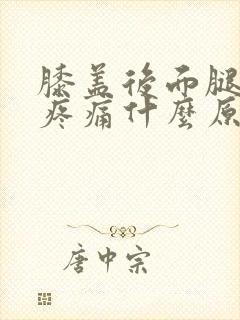 膝盖後而腿
疼痛什麼原
唐中宗